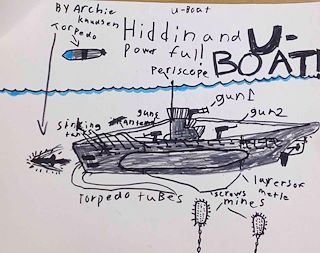 U-Boat
BY Archie
knudsen
Torpedo
Hiddin and
Powerfull!
U-
BOAT!
Periscope
gun1
gun2
guns
antena
striking
layers of
metle
Torpedo tubes
screws
mines